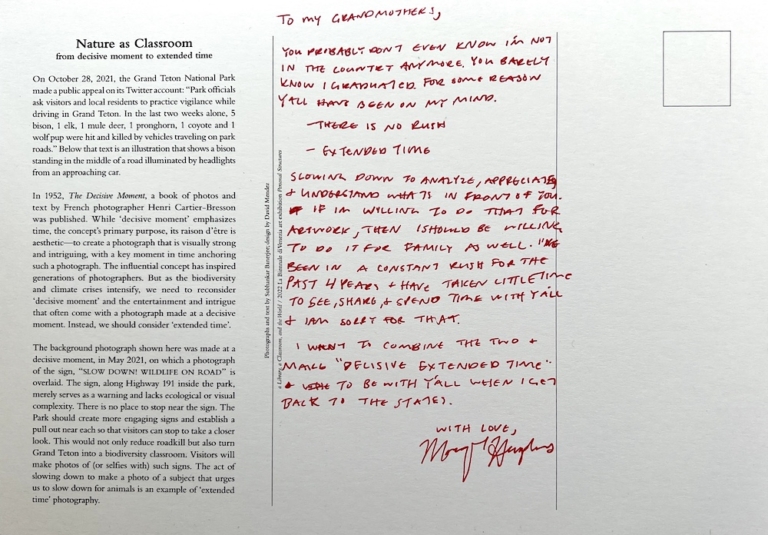 Nature as Classroom
from decisive moment to extended time
On October 28, 2021, the Grand Teton National Park
made a public appeal on its Twitter account: “Park officials
ask visitors and local residents to practice vigilance while
driving in Grand Teton. In the last two weeks alone, 5
bison, 1 elk, 1 mule deer, 1 pronghorn, 1 coyote and 1
wolf pup were hit and killed by vehicles traveling on park
roads.” Below that text is an illustration that shows a bison
standing in the middle of a road illuminated by headlights
from an approaching car.
In 1952, The Decisive Moment, a book of photos and
text by French photographer Henri Cartier-Bresson
was published. While ‘decisive moment’ emphasizes
time, the concept’s primary purpose, its raison d’être is
aesthetic—to create a photograph that is visually strong
and intriguing, with a key moment in time anchoring
such a photograph. The influential concept has inspired
generations of photographers. But as the biodiversity
and climate crises intensify, we need to reconsider
‘decisive moment’ and the entertainment and intrigue
that often come with a photograph made at a decisive
moment. Instead, we should consider ‘extended time’.
The background photograph shown here was made at a
decisive moment, in May 2021, on which a photograph
of the sign, “SLOW DOWN! WILDLIFE ON ROAD” is
overlaid. The sign, along Highway 191 inside the park,
merely serves as a warning and lacks ecological or visual
complexity. There is no place to stop near the sign. The
Park should create more engaging signs and establish a
pull out near each so that visitors can stop to take a closer
look. This would not only reduce roadkill but also turn
Grand Teton into a biodiversity classroom. Visitors will
make photos of (or selfies with) such signs. The act of
slowing down to make a photo of a subject that urges
us to slow down for animals is an example of ‘extended
time’ photography.
Photographs and text by Subhankar Banerjee, design by David Mendez
a Library, a Classroom, and the World / 2022 La Biennale di Venezia art exhibition Personal Structures
TO MY GRANDMOTHERS,
YOU PROBABLY DONT EVEN KNOW IM NOT
IN THE COUNTRY ANYMORE. YOU BARELY
KNOW I GRADUATED. FOR SOME REASON
Y'ALL HAVE BEEN ON MY MIND.
- THERE IS NO RUSH
- EXTENDED TIME
SLOWING DOWN TO ANALYZE, APPRECIATE
+ UNDERSTAND WHATS IN FRONT OF YOU.
IF IM WILLING TO DO THAT FOR
ARTWORK, THEN I SHOULD BE WILLING
TO DO IT FOR FAMILY AS WELL. I'VE
BEEN IN A CONSTANT RUSH FOR THE
PAST 4 YEARS + HAVE TAKEN LITTLE TIME
TO SEE, SHARE, + SPEND TIME WITH Y'ALL
+ I AM SORRY FOR THAT.
I WANT TO COMBINE THE TWO +
MAKE "DECISIVE EXTENDED TIME"
TO BE WITH Y'ALL WHEN I GET
BACK TO THE STATES.
WITH LOVE,